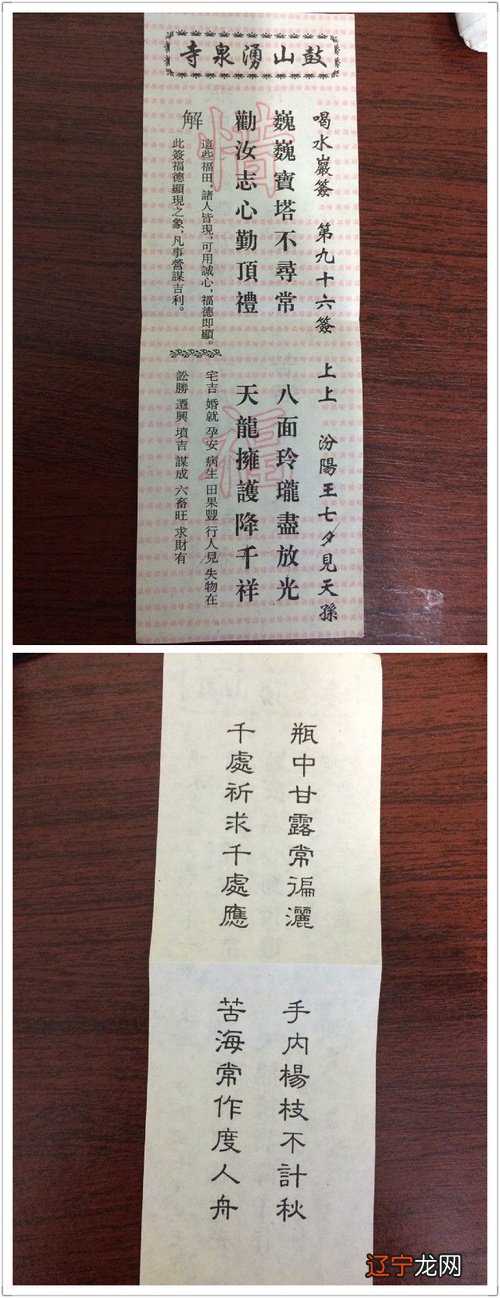 鼓山湧泉寺
喝水巖簽 第九十六簽 上上 汾陽王七夕見天孫
巍巍寶塔不尋常 八面玲瓏盡放光
勸汝志心勤頂禮 天龍擁護降千祥
解
這些福田,諸人皆現,可用誠心,福德即顯。
此簽福德顯現之象,凡事營謀吉利。
宅吉 婚就 孕安 病生 田果豐 行人見 失物在
訟勝 遷興 墳吉 謀成 六畜旺 求財有
惜福
瓶中甘露常徧灑 手內楊枝不計秋
千處祈求千處應 苦海常作度人舟
辽宁龙网